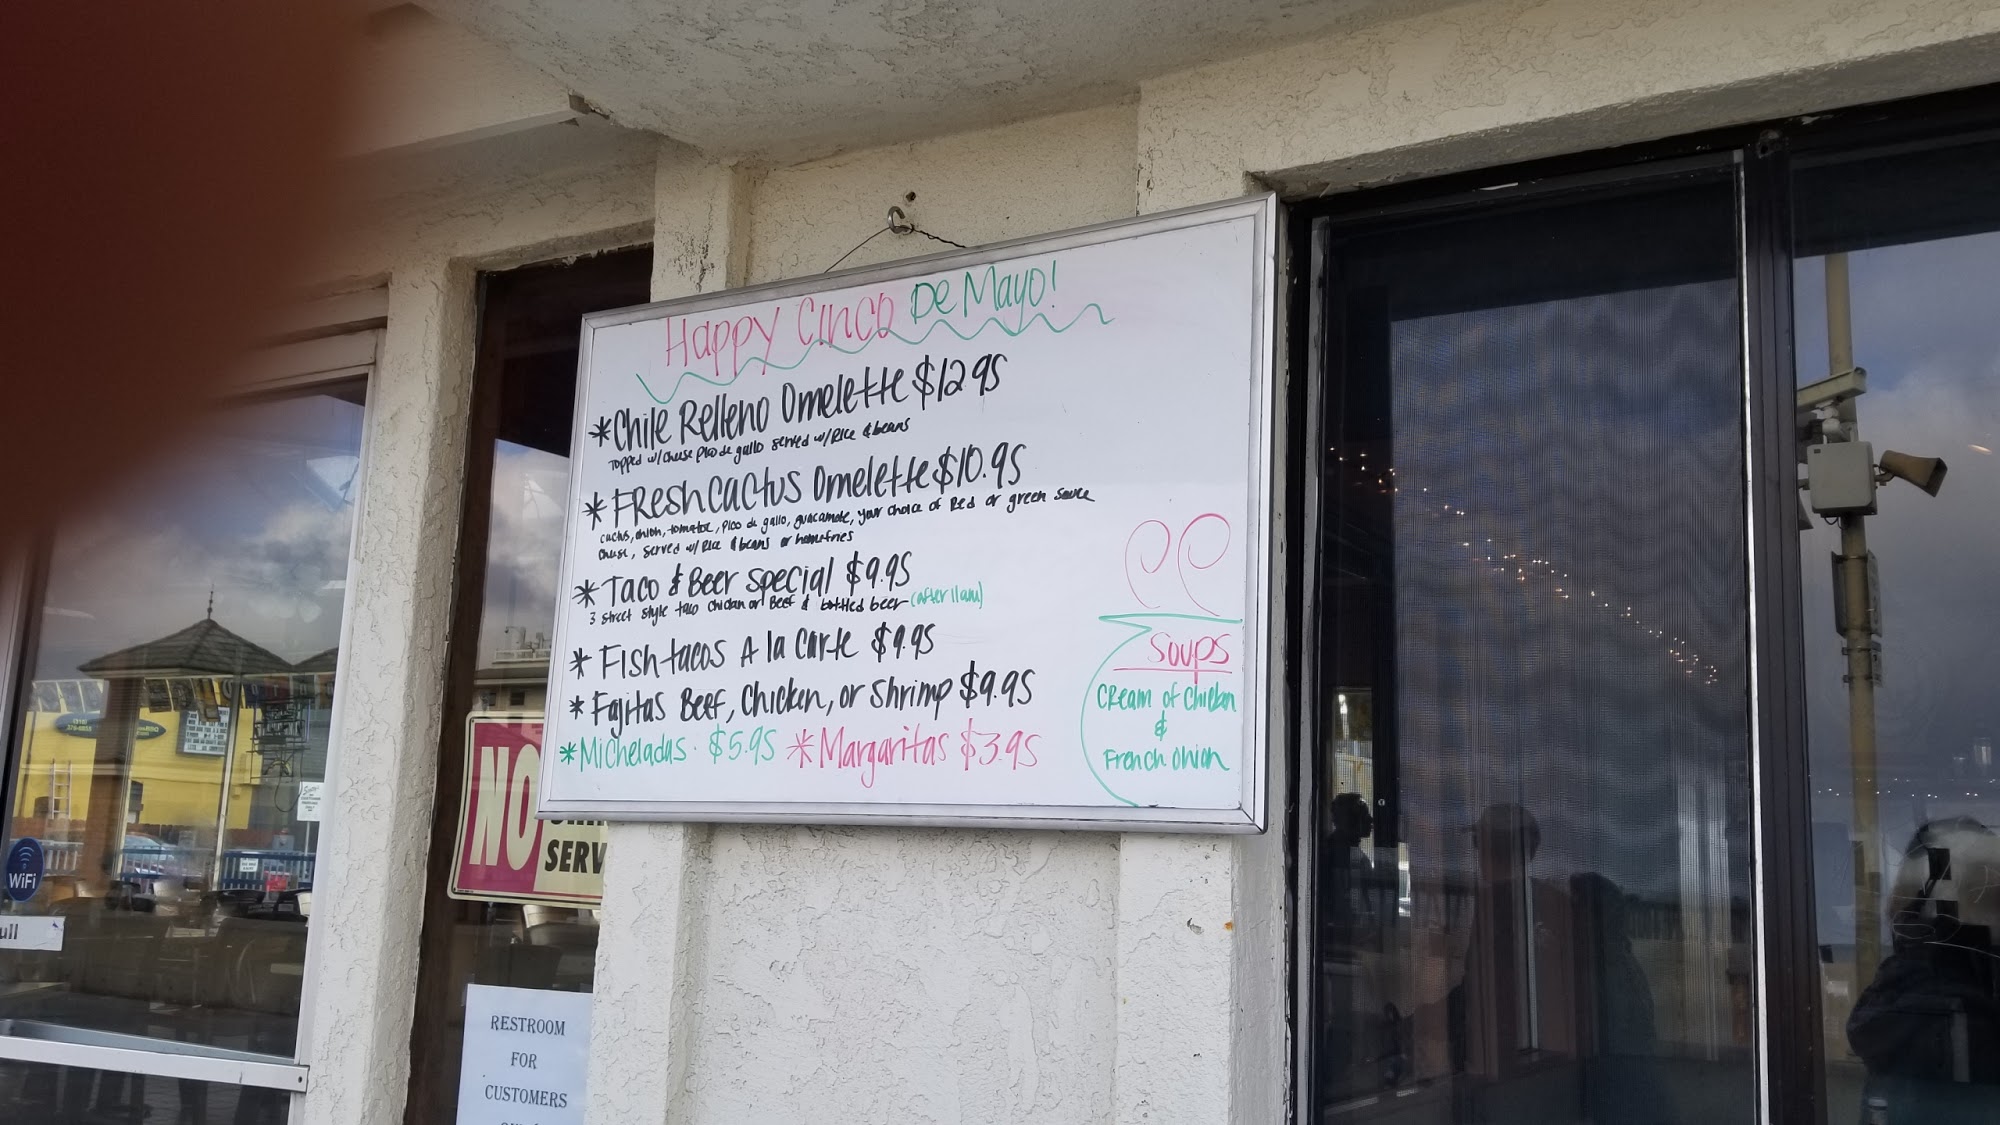 Happy Cinco De Mayo!
*Chile Relleno Omelette $12.95
Topped w/cheese pico de gallo served w/Rice & beans
*Fresh Cactus Omelette $10.95
cactus, onion, tomatoe, pico de gallo, guacamole, your choice of Red or green sauce
cheese, served w/ Rice & beans or homefries
*Taco & Beer Special $9.95
3 street style taco chicken or Beef & bottled beer (after 11am)
*Fish tacos A la carte $9.95
*Fajitas Beef, Chicken, or Shrimp $9.95
*Micheladas. $5.95 *Margaritas $3.95
Soups
Cream of Chicken
&
French Onion
NO
SERV
RESTROOM
FOR
CUSTOMERS
WiFi
ull